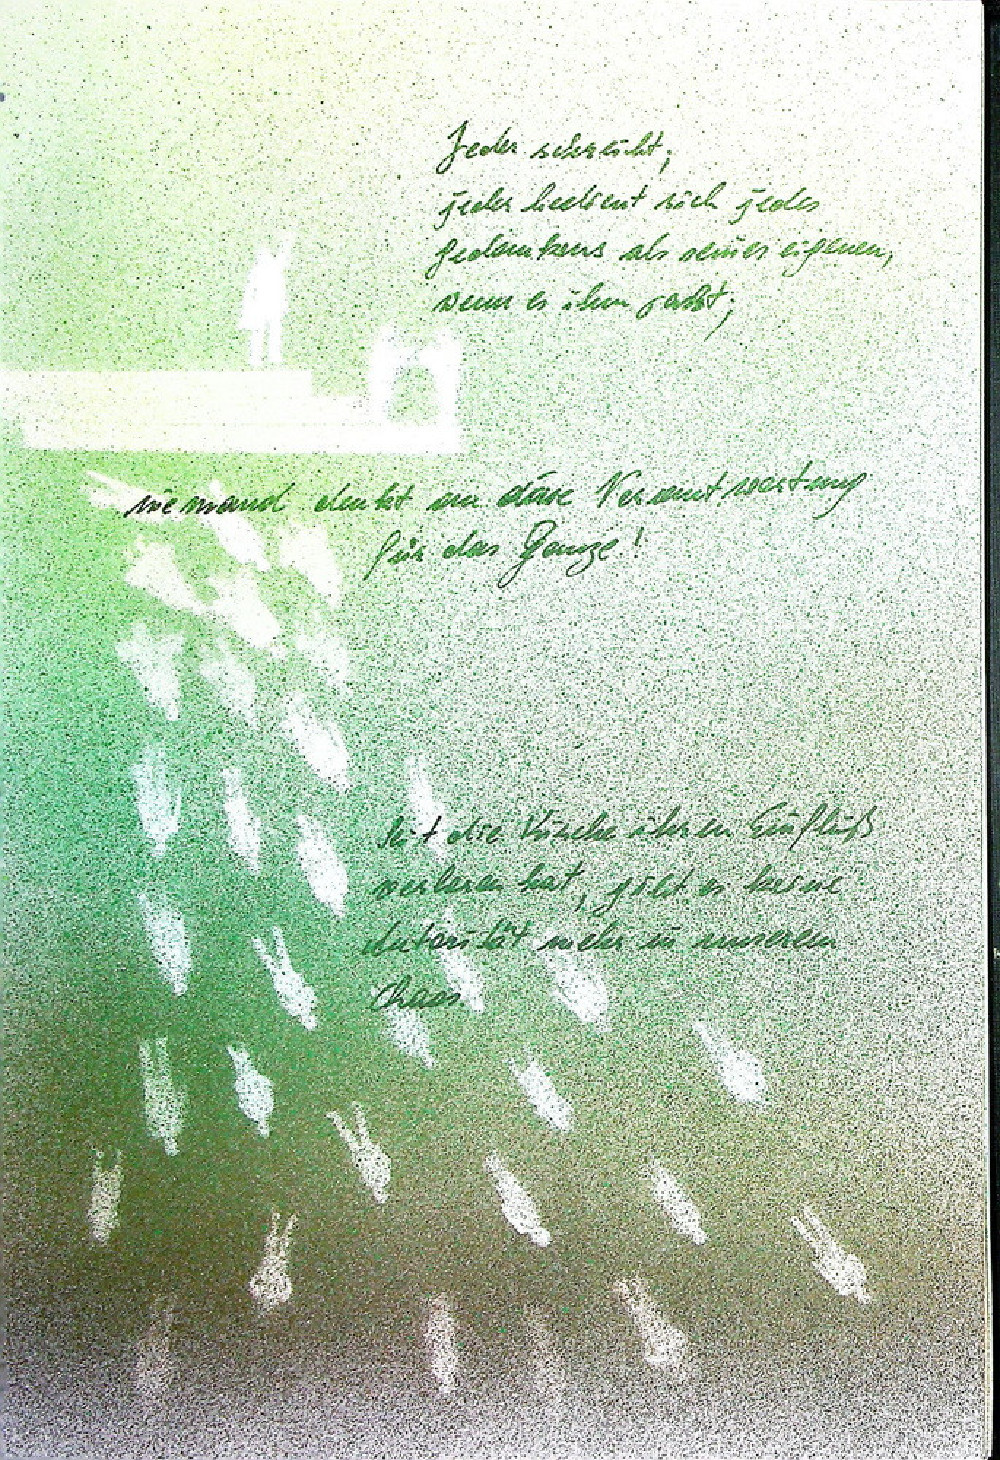 Jeder schreibt,
jeder bedient sich jedes
Gedankens als seines eigenen,
wenn es ihm paßt;
niemand denkt an die Verantwortung
für das Ganze!
Seit die Kirche ihren Einfluß
verloren hat, gibt es keine
Autorität mehr in unserem
Chaos